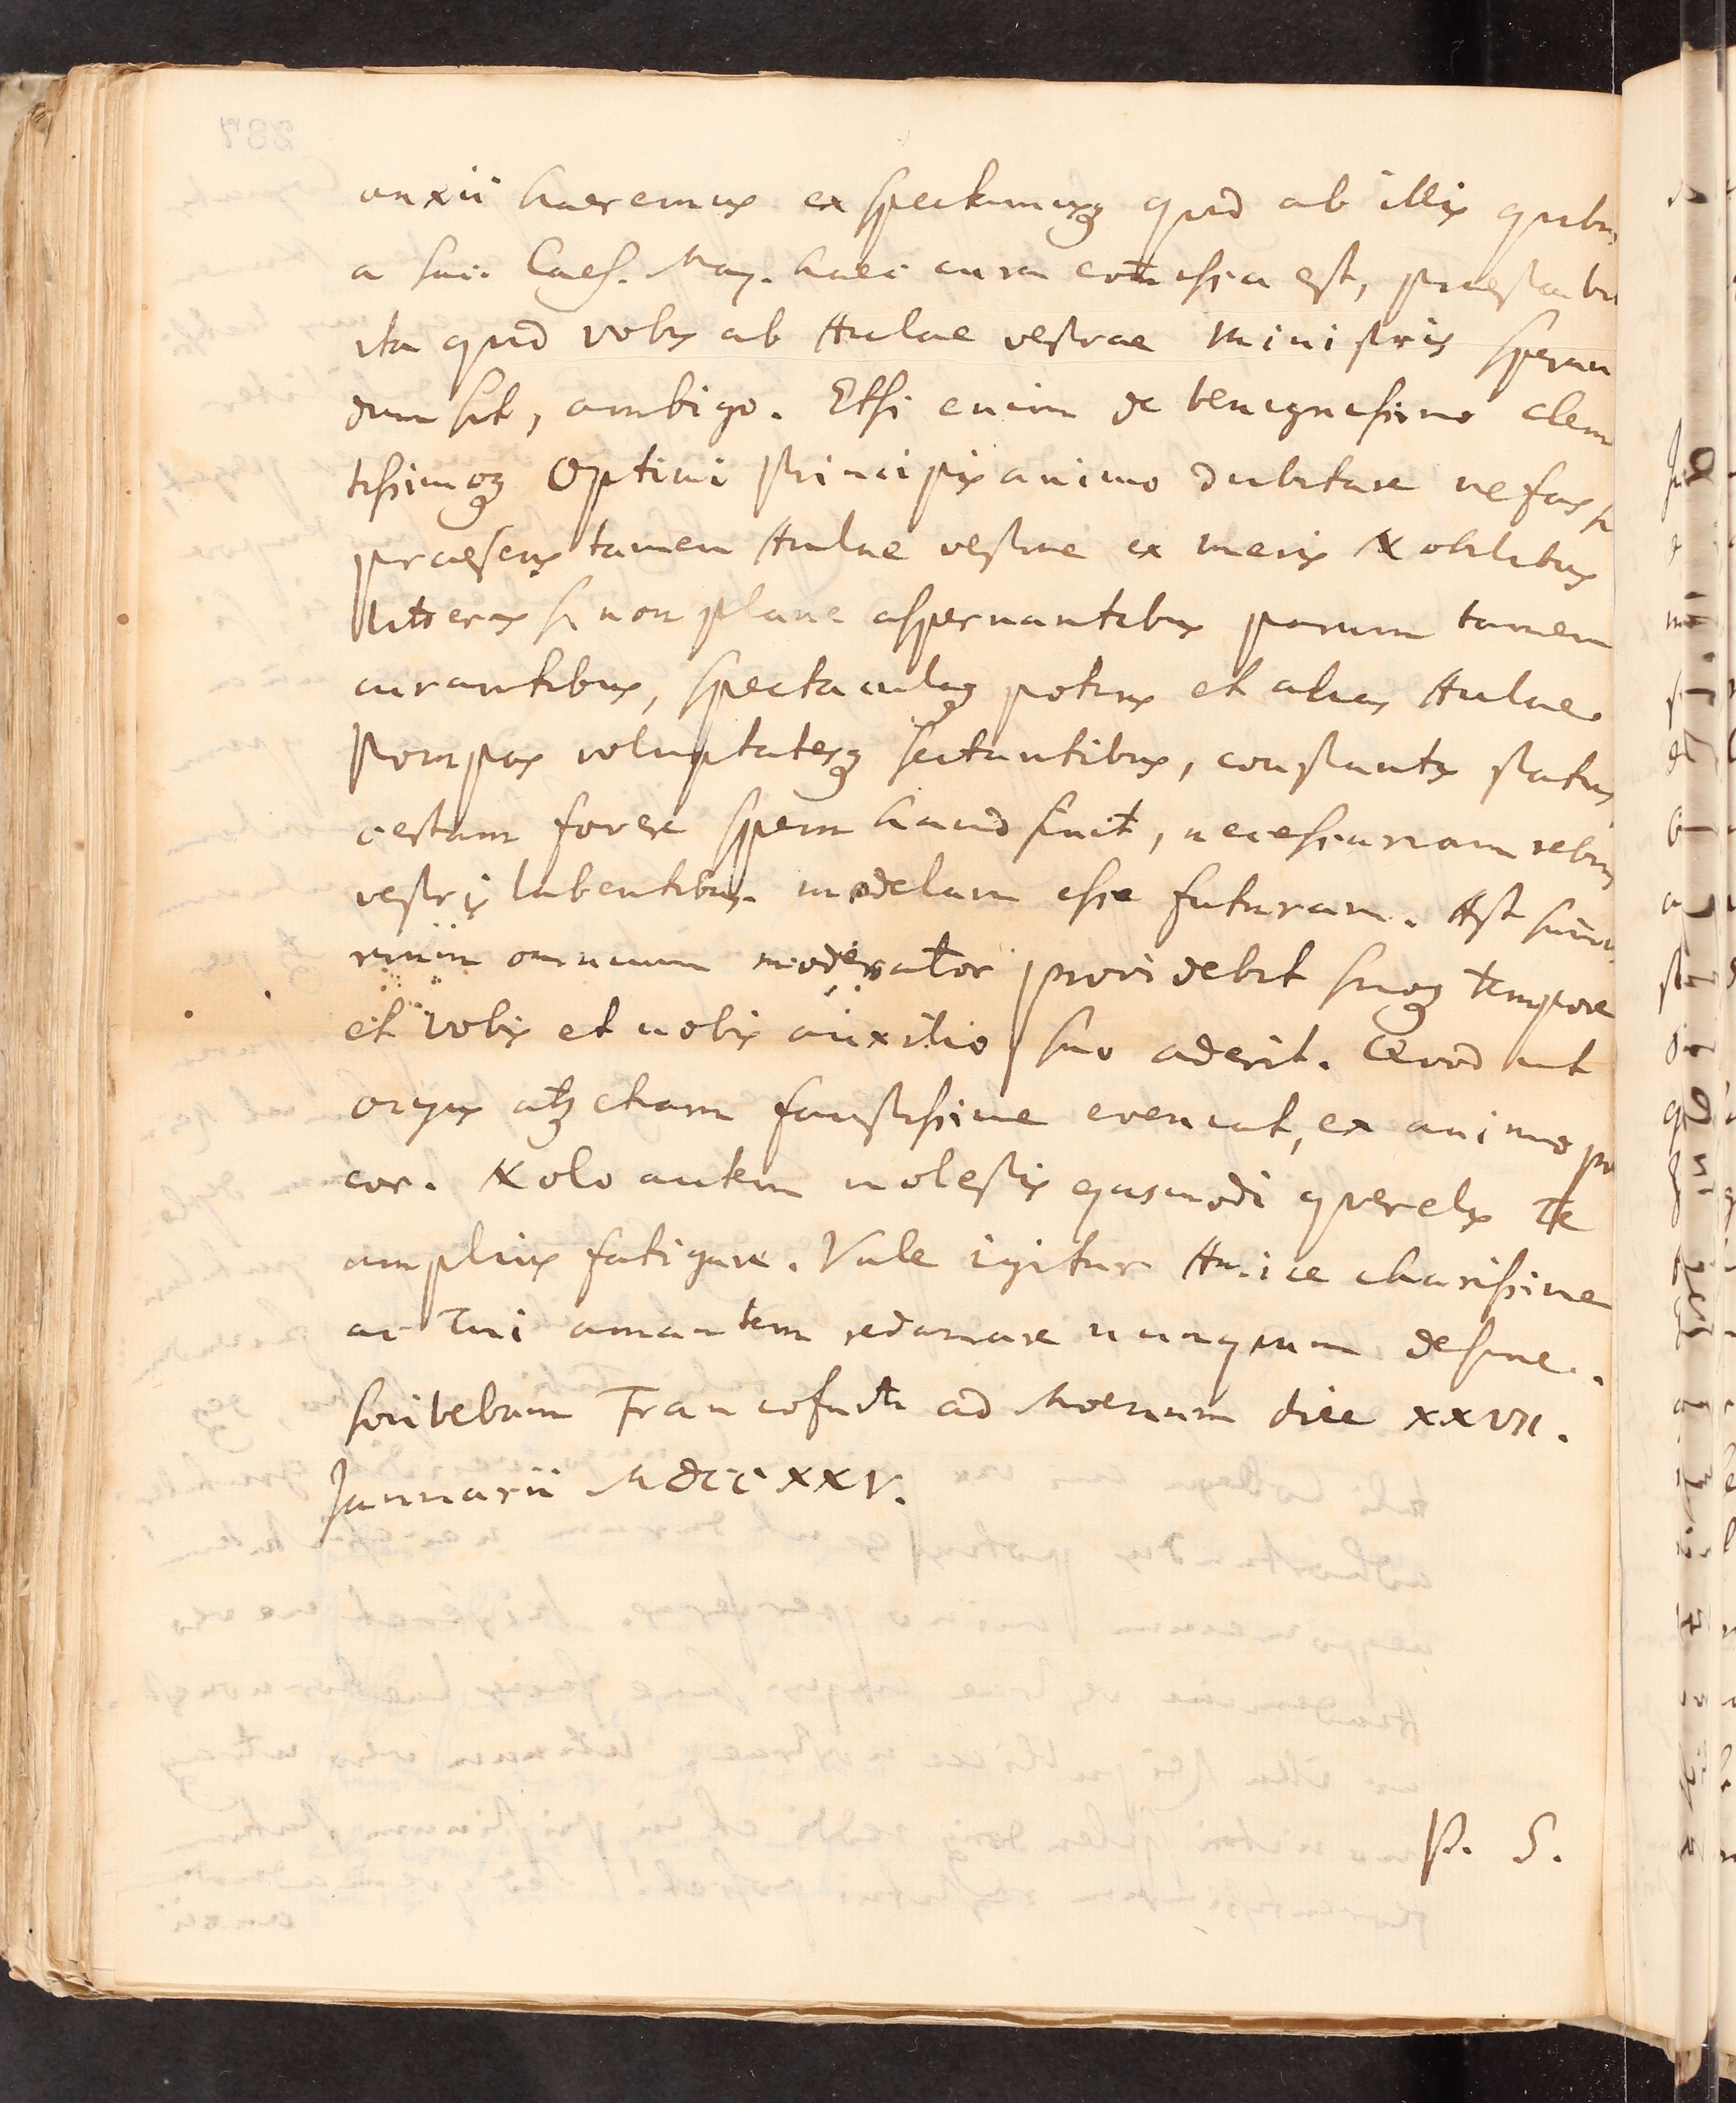 anxii haeremus exspectamusq quid ab illis quibus
a Sac. Caes. Maj. haec cura com̄issa est, praestabi
ita quid vobis ab Aulae vestrae ministris speran
dum sit, ambigo. Etsi enim de benignissimo clemen
tissimoq Optimi Principis animo dubitare nefas sit
praesens tamen Aulae vestrae ex meris Nobilibus
litteras si non plane aspernantibus parum tamen
curantibus, spectaculaq potius et alias Aulae
pompas voluptatesq sectantibus, constantis status
certam fovere spem haud sinit, necessariam rebus
vestris labentibus medelam esse futuram. Ast summus
rerum omnium moderator providebit suoq tempore
et vobis et nobis auxilio suo aderit. Quod ut
ocyus atq etiam faustissime eveniat, ex animo pre
cor. Nolo autem molestis ejusmodi querelis Te
amplius fatigare. Vale igitur Amice charissime
ac Tui amantem redamare nunquam desine.
Scribebam Francofurti ad Moenum die XXVII.
Januarii MDCCXXV.
P. S.